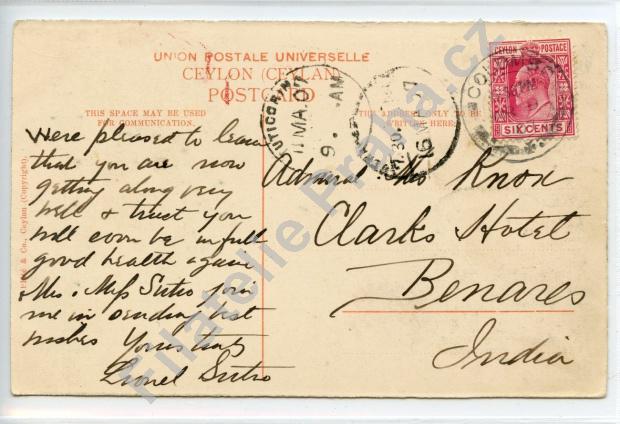 UNION POSTALE UNIVERSELLE
CEYLON (CEYLAN)
POSTCARD
THIS SPACE MAY BE USED
FOR COMMUNICATION.
THE ADDRESS ONLY TO BE
WRITTEN HERE.
TUTICORIN
11 MA 07
9. AM
CEYLON POSTAGE
SIX CENTS
Were pleased to learn
that you are now
getting along very
well & trust you
will soon be in full
good health again
Mrs. Miss Sutro join
me in sending best
wishes Yours truly
Lionel Sutro
Admiral Knox
Clarks Hotel
Benares
India
& Co., Ceylon (Copyright).
Filatelie Praha.cz